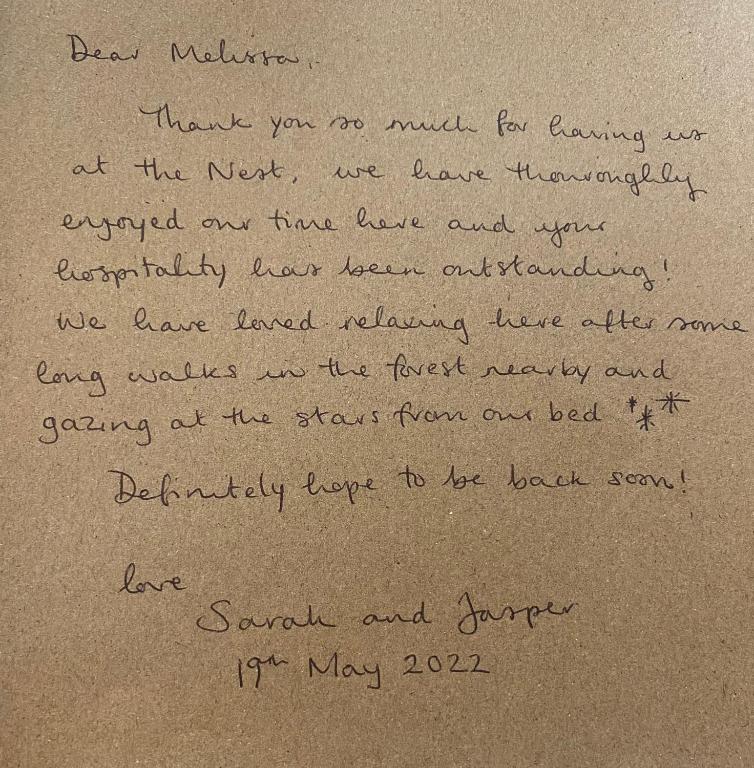 Dear Melissa,
Thank you so much for having us
at the Nest, we have thouroughly
enjoyed our time here and your
hospitality has been outstanding!
We have loved relaxing here after some
long walks in the forest nearby and
gazing at the stars from our bed ***
Definitely hope to be back soon!
love
Sarah and Jasper
19th May 2022